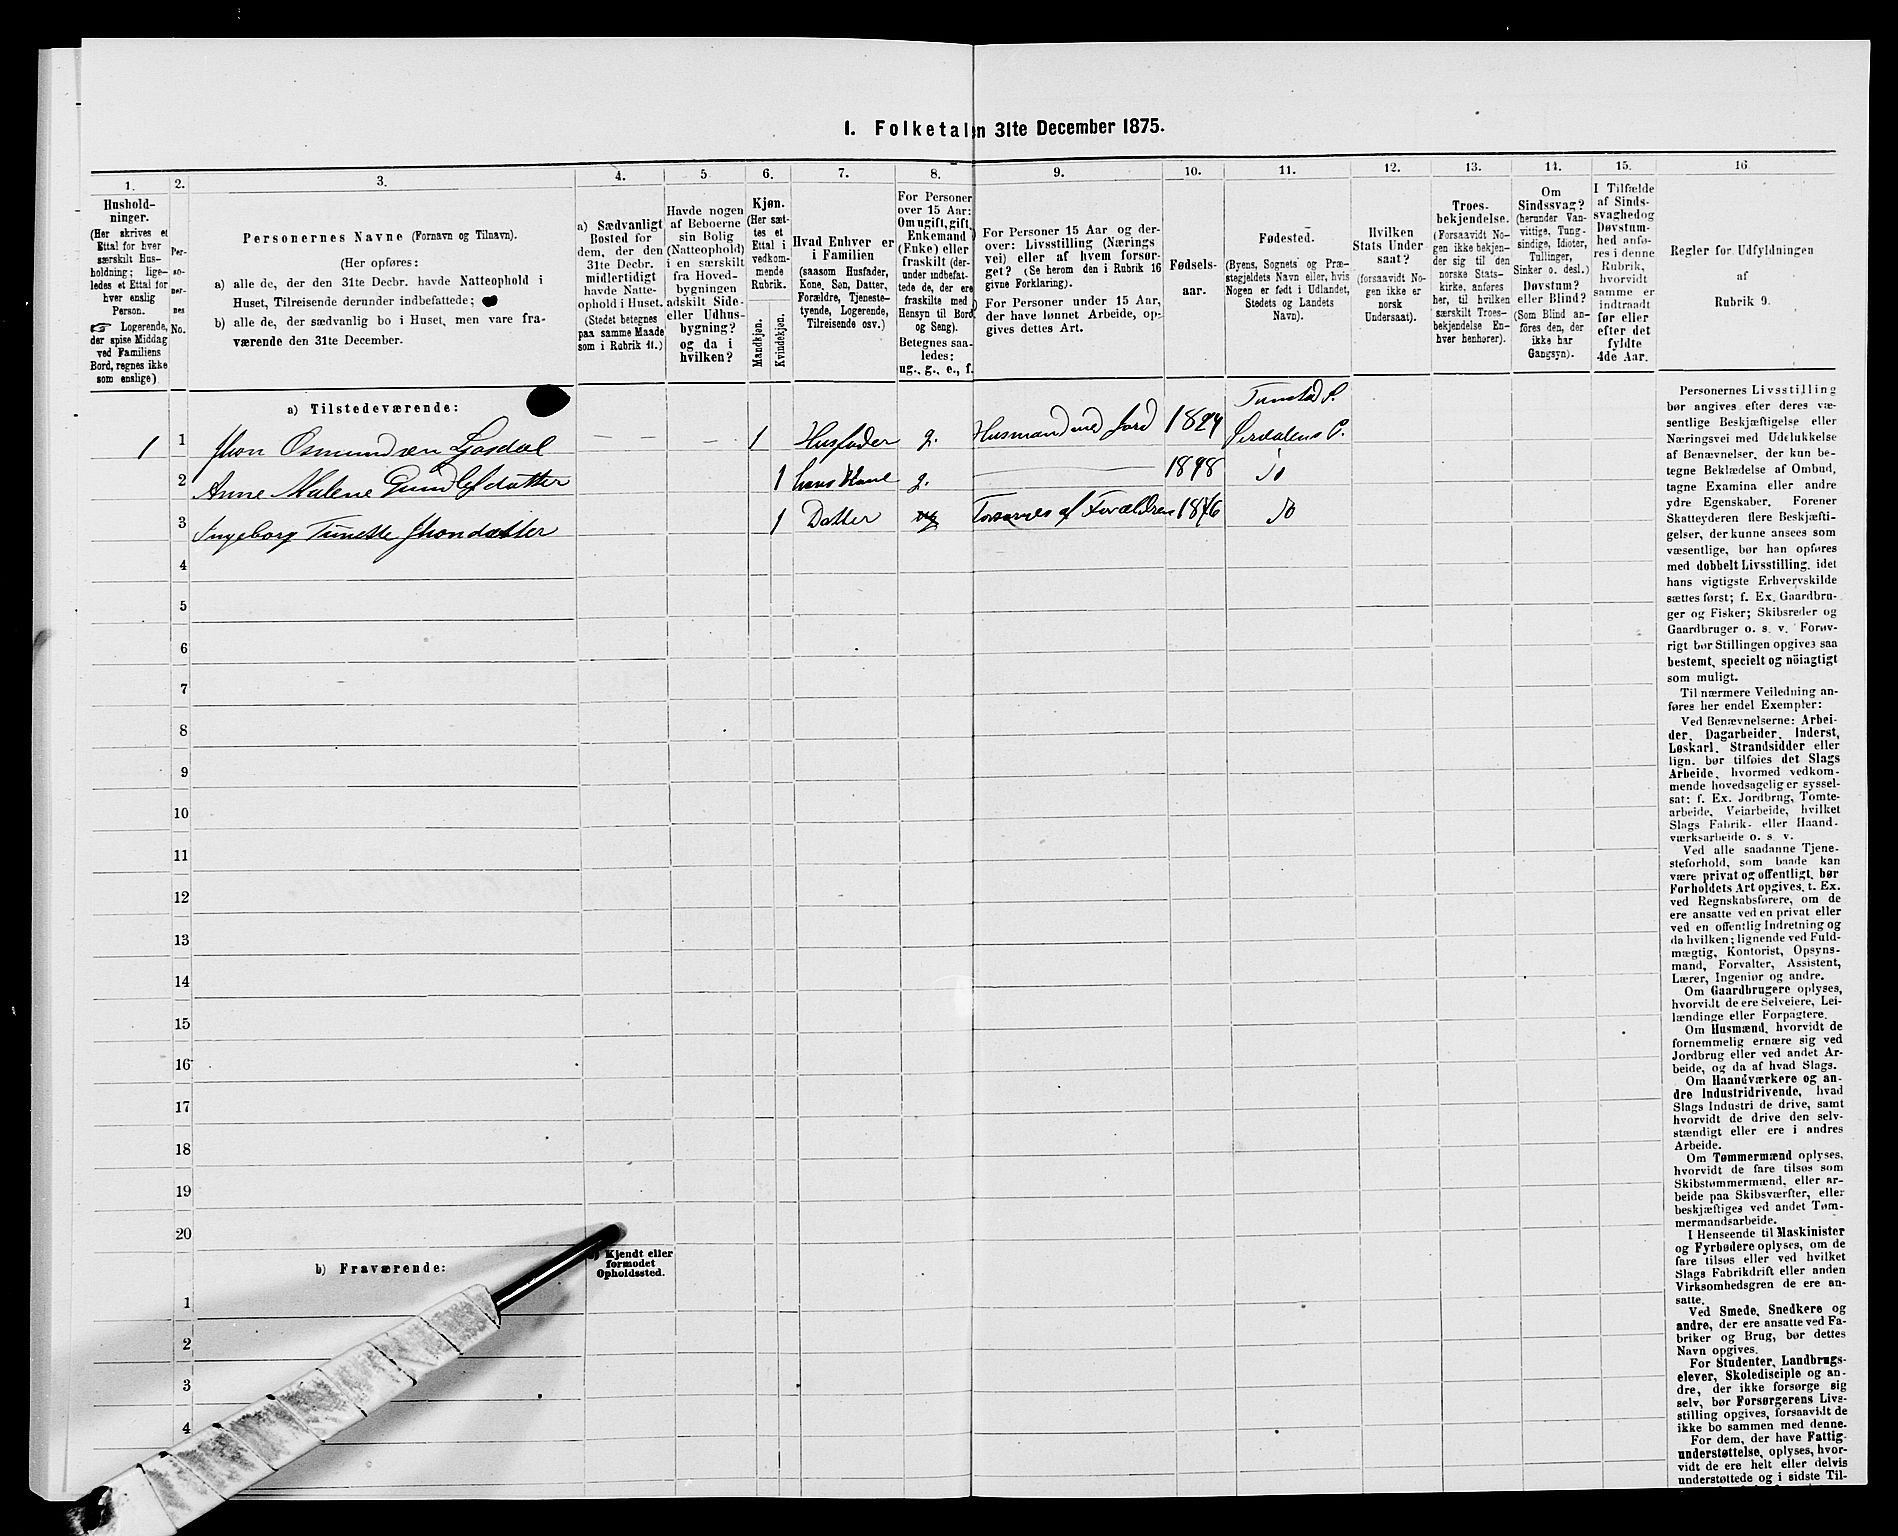 I. Folketallen 31te December 1875.
1.
Hushold-
ninger.
(Her skrives et
Ettal for hver
særskilt Hus-
holdning; lige-
ledes et Ettal for
hver enslig
Person.
☞ Logerende,
der spise Middag
ved Familiens
Bord, regnes ikke
som enslige)
2.
Per-
so-
ner-
nes
No.
3.
Personernes Navne (Fornavn og Tilnavn).
(Her opføres:
a) alle de, der den 31te Decbr. havde Natteophold i
Huset, Tilreisende derunder indbefattede;
b) alle de, der sædvanlig bo i Huset, men vare fra-
værende den 31te December.
4.
a) Sædvanligt
Bosted for
dem, der den
31te Decbr.
midlertidigt
havde Natte-
ophold i Huset.
(Stedet betegnes
paa samme Maade
som i Rubrik 11.)
5.
Havde nogen
af Beboerne
sin Bolig
(Natteophold)
i en særskilt
fra Hoved-
bygningen
adskilt Side-
eller Udhus-
bygning?
og da i
hvilken?
6.
Kjøn.
(Her sæt-
tes et
Ettal i
vedkom-
mende
Rubrik.
Mandkjøn.
Kvindekjøn.
7.
Hvad Enhver er
i Familien
(saasom Husfader,
Kone, Søn, Datter,
Forældre, Tjeneste-
tyende, Logerende,
Tilreisende osv.)
8.
For Personer
over 15 Aar:
Om ugift, gift,
Enkemand
(Enke) eller
fraskilt (der-
under indbefat-
tede de, der ere
fraskilte med
Hensyn til Bord
og Seng).
Betegnes saa-
ledes:
ug., g., e., f.
9.
For Personer 15 Aar og der-
over: Livsstilling (Nærings
vei) eller af hvem forsør-
get? (Se herom den i Rubrik 16
givne Forklaring).
For Personer under 15 Aar,
der have lønnet Arbeide, op-
gives dettes Art.
10.
Fødsels-
aar.
11.
Fødested.
(Byens, Sognets og Præ-
stegjeldets Navn eller, hvis
Nogen er født i Udlandet,
Stedets og Landets
Navn).
12.
Hvilken
Stats Under
saat?
(forsaavidt No-
gen ikke er
norsk
Undersaat).
13.
Troes-
bekjendelse.
(Forsaavidt No-
gen ikke bekjen-
der sig til den
norske Stats-
kirke, anføres
her, til hvilken
særskilt Troes-
bekjendelse En-
hver henhører).
14.
Om
Sindssvag?
(herunder Van-
vittige, Tung-
sindige, Idioter,
Tullinger,
Sinker o. desl.)
Døvstum?
eller Blind?
(Som Blind an-
føres den, der
ikke har
Gangsyn).
15.
I Tilfælde
af Sinds-
svaghedog
Døvstum-
hed anfø-
res i denne
Rubrik,
hvorvidt
samme er
indtraadt
før eller
efter det
fyldte
4de Aar.
16
Regler for Udfyldningen
af
Rubrik 9.
a) Tilstedeværende:
1 1 Jhon Osmundsen Ljosdal — — — 1 Husfader g. Husmand med Jord 1824 Tonstad S. Sirdalens P.
2 Anne Malene Gundlefsdatter 1 hans Kone g. 1828 Do
3 Ingeborg Tunette Jhonsdatter 1 Datter ug Forsørges af Forældrene 1876 Do
4
5
6
7
8
9
10
11
12
13
14
15
16
17
18
19
20
b) Fraværende:
b) Kjendt eller
formodet
Opholdssted.
1
2
3
4
Personernes Livsstilling
bør angives efter deres væ-
sentlige Beskjæftigelse eller
Næringsvei med Udelukkelse
af Benævnelser, der kun be-
tegne Beklædelse af Ombud,
tagne Examina eller andre
ydre Egenskaber. Forener
Skatteyderen flere Beskjæfti-
gelser, der kunne ansees som
væsentlige, bør han opføres
med dobbelt Livsstilling, idet
hans vigtigste Erhvervskilde
sættes først; f. Ex. Gaardbru-
ger og Fisker; Skibsreder og
Gaardbruger o. s. v. Forøv-
rigt bør Stillingen opgives saa
bestemt, specielt og nöiagtigt
som muligt.
Til nærmere Veiledning an-
føres her endel Exempler:
Ved Benævnelserne: Arbei-
der, Dagarbeider, Inderst,
Løskarl, Strandsidder eller
lign. bør tilføies det Slags
Arbeide, hvormed vedkom-
mende hovedsagelig er syssel-
sat: f. Ex. Jordbrug, Tomte-
arbeide, Veiarbeide, hvilket
Slags Fabrik- eller Haand-
værksarbeide o. s. v.
Ved alle saadanne Tjene-
steforhold, som baade kan
være privat og offentligt, bør
Forholdets Art opgives, t. Ex.
ved Regnskabsførere, om de
ere ansatte ved en privat eller
ved en offentlig Indretning og
da hvilken; lignende ved Fuld-
mægtig, Kontorist, Opsyns-
mand, Forvalter, Assistent,
Lærer, Ingeniør og andre.
Om Gaardbrugere oplyses,
hvorvidt de ere Selveiere, Lei-
lændinge eller Forpagtere.
Om Husmænd, hvorvidt de
fornemmelig ernære sig ved
Jordbrug eller ved andet Ar-
beide, og da af hvad Slags.
Om Haandværkere og an-
dre Industridrivende, hvad
Slags Industri de drive, samt
hvorvidt de drive den selv-
stændigt eller ere i andres
Arbeide.
Om Tømmermænd oplyses,
hvorvidt de fare tilsøs som
Skibstømmermænd, eller ar-
beide paa Skibsværfter, eller
beskjæftiges ved andet Tøm-
mermandsarbeide.
I Henseende til Maskinister
og Fyrbødere oplyses, om de
fare tilsøs eller ved hvilket
Slags Fabrikdrift eller anden
Virksomhedsgren de ere an-
satte.
Ved Smede, Snedkere og
andre, der ere ansatte ved Fa-
briker og Brug, bør dettes
Navn opgives.
For Studenter, Landbrugs-
elever, Skoledisciple og an-
dre, der ikke forsørge sig
selv, bør Forsørgerens Livs-
stilling opgives, forsaavidt de
ikke bo sammen med denne.
For dem, der have Fattig-
understøttelse, oplyses, hvor-
vidt de ere helt eller delvis
understøttede og i sidste Til-